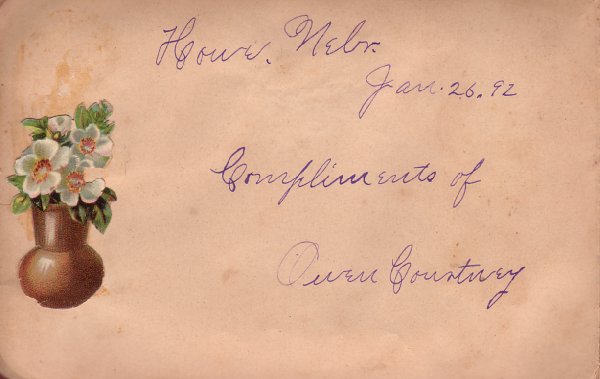 Howe, Nebr.
Jan. 26. 92
Compliments of
Owen Courtney